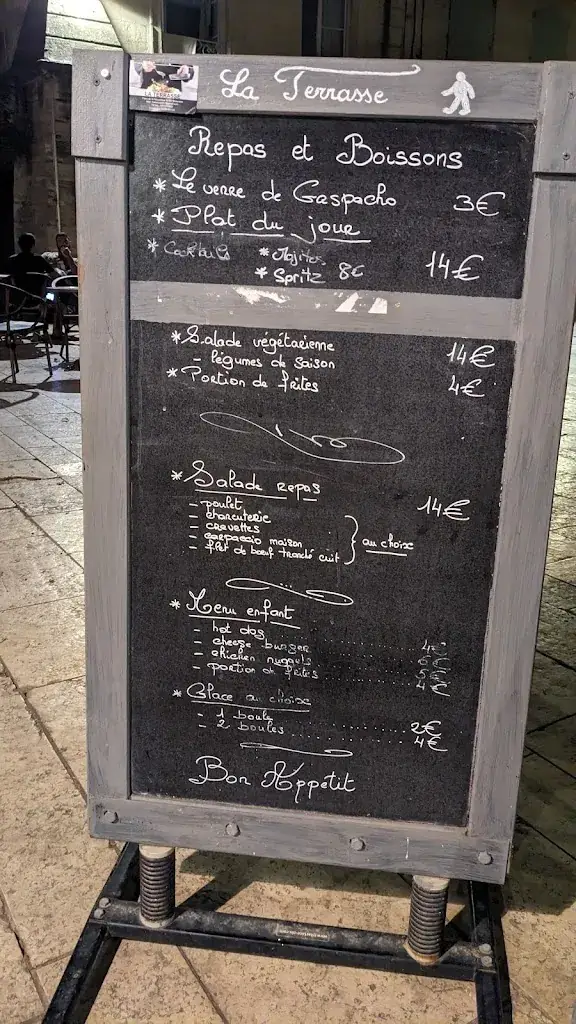 La Terrasse
LA TERRASSE
Repas et Boissons
* Le verre de Gaspacho 3€
* Plat du jour 14€
* Cocktails * Mojitos
* Spritz 8€
* Salade végétarienne 14€
- légumes de saison
* Portion de frites 4€
* Salade repas 14€
- poulet
- charcuterie
- crevettes
- carpaccio maison
- filet de bœuf tranché cuit
au choix
* Menu enfant
- hot dog 4€
- cheese burger 6€
- chicken nuggets 5€
- portion de frites 4€
* Glace au choix
- 1 boule 2€
- 2 boules 4€
Bon Appétit